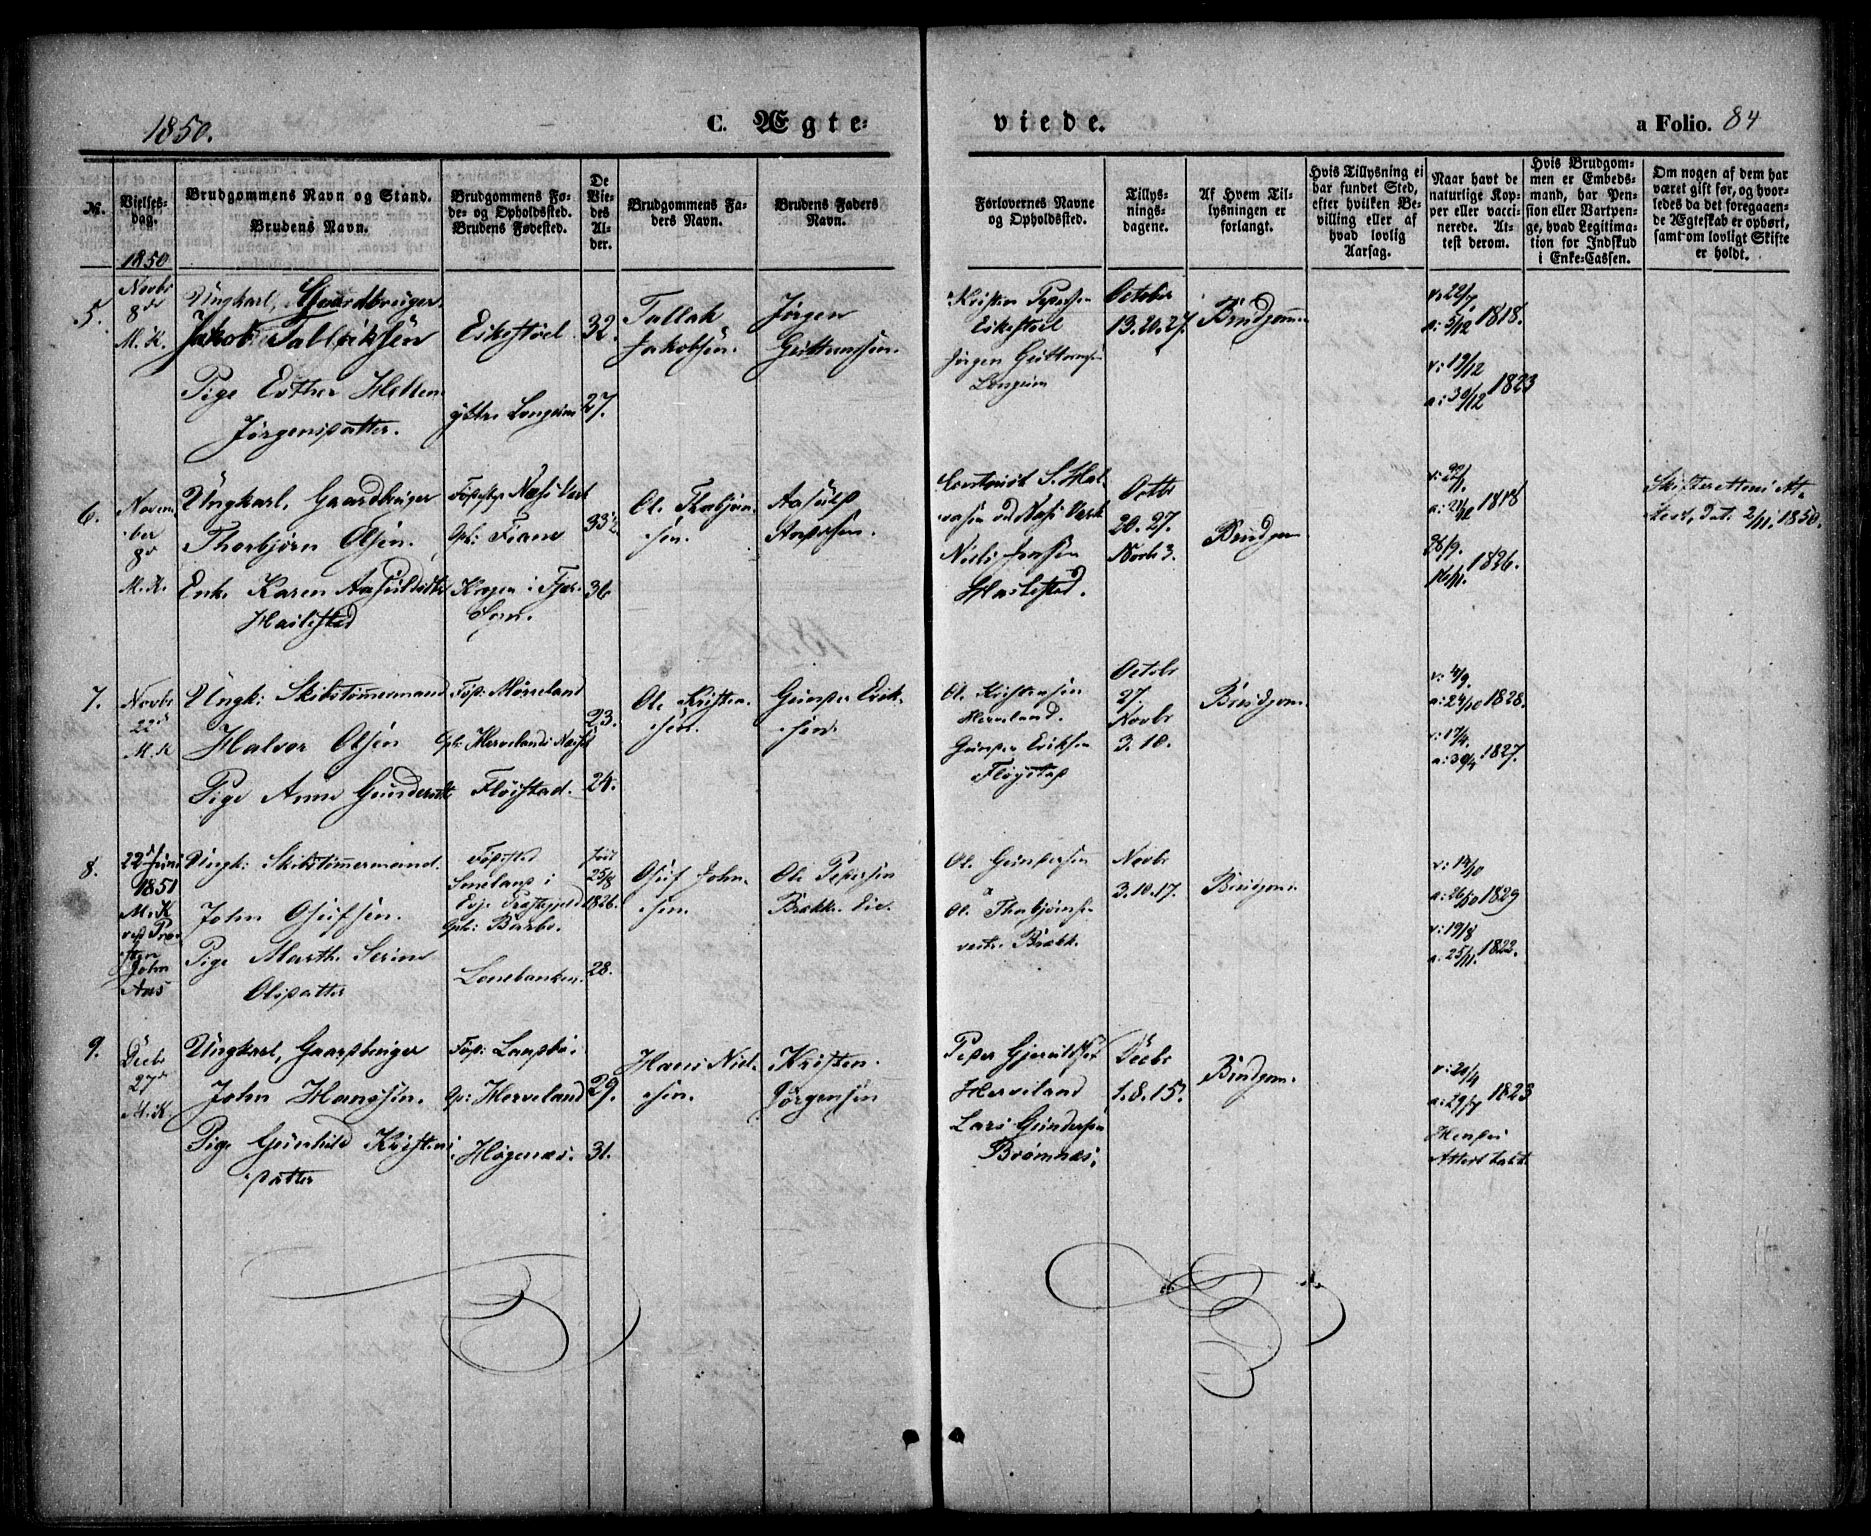 1850.
C. Ægte-
viede.
a Folio. 84
№.
Vielses-
dag.
Brudgommens Navn og Stand.
Brudens Navn.
Brudgommens Fø-
de- og Opholdssted.
Brudens Fødested.
De
Vie-
des
Al-
der.
Brudgommens Fa-
ders Navn.
Brudens Faders
Navn.
Forlovernes Navne
og Opholdssted.
Tillys-
nings-
dagene.
Af Hvem Til-
lysningen er
forlangt.
Hvis Tillysning ei
har fundet Sted,
efter hvilken Be-
villing eller af
hvad lovlig
Aarsag.
Naar havt de
naturlige Kop-
per eller vacci-
nerede. At-
test derom.
Hvis Brudgom-
men er Embeds-
mand, har Pen-
sion eller Vartpen-
ge, hvad Legitima-
tion for Indskud
i Enke-Cassen.
Om nogen af dem har
været gift før, og hvor-
ledes da det foregaaen-
de Ægteskab er ophørt,
samt om lovligt Skifte
er holdt.
1850
5.
Novbr
8de
M. K.
Ungkarl, Gaardbruger
Jakob Tallaksen
Pige Esther Helene
Jørgensdatter.
Eikestoel
32.
27.
Tallak
Jakobsen.
Jørgen
Guttormsen.
Kristen Pedersen
Eikestoel
Jørgen Guttormsen
Longum
October
13. 20. 27.
Brudgom
v: 22/7
a: 5/12 1818.
v: 19/12
a: 30/12 1823
6.
Novem-
ber
8de
M. K.
Ungkarl, Gaardbruger
Thorbjørn Olsen.
Enke Karen Aasulsdtr
Hailestad
Fødested Næs Værk
33 1/2
36
Ole Thorbjørn-
sen.
Aasuld
Niels Jensen
Octbr
20. 27.
Novbr 3.
Brudgom
1818
1826.
Skifterettens At-
test, dat. 2/11. 1850.
7.
Novbr
22de
M. K
Ungk: Skibstømmermand
Halvor Olsen
Pige Anne Gundersdtr
Fød: Mørveland
Fløistad.
23.
24.
Ole Kristen-
sen.
Gunder Erik-
sen.
Ole Kristensen
Merveland.
Gunder Eriksen
Fløystad
Octobr
27.
Novbr
3. 10.
Brudgom
v: 4/9.
a: 24/10 1828.
v: 17/4.
a: 30/4 1827.
8.
22de Juni
1851
M. K
John
Aas
Ungk: Skibstømmermand.
John Olufsen.
Pige Marthe Serine
Olsdatter
Fødested
i
Evje Præstegjeld
Op: Barbo.
Lonebakken.
født
25/8
1826.
28.
Oluf John-
sen.
Ole Pedersen
Ole Gundersen
Ole Thorbjørnsen
vestre Brække
Novbr
3. 10. 17.
Brudgom
v: 14/10
a: 26/10 1829
v: 19/8
a: 25/11. 1822.
9.
Decbr
27de
M. K.
Ungkarl, Gaardbruger
John Hansen.
Pige Gunhild Kristens-
datter
Op: Merveland
29.
31.
Hans Niel-
sen.
Kristen
Jørgensen
Merveland
Lars Gundersen
Brømnæs,
Decbr
1. 8. 15.
Brudgom.
v: 20/4
1823
Attest